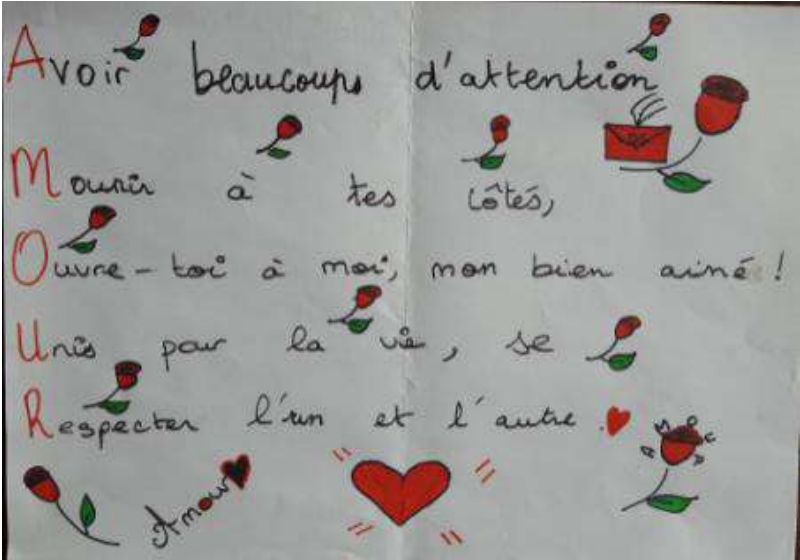 Avoir beaucoups d'attention
Mourir à tes côtés,
Ouvre-toi à moi, mon bien aimé !
Unis par la vie, se
Respecter l'un et l'autre.
Amour
AMOUR